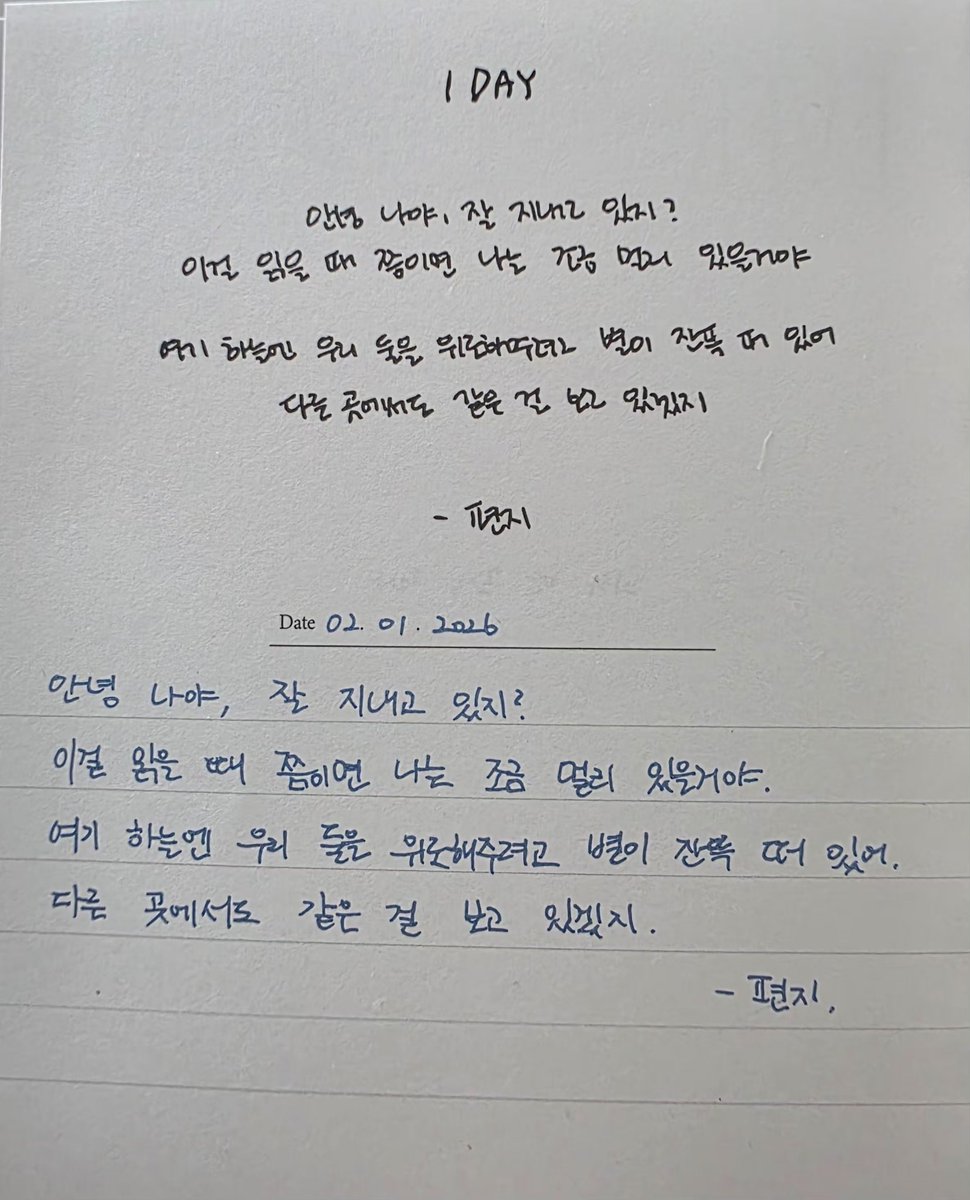 1 DAY
안녕 나야, 잘 지내고 있지?
이걸 읽을 때 쯤이면 나는 조금 멀리 있을거야
여기 하늘엔 우리 둘을 위로해주려고 별이 잔뜩 떠 있어
다른 곳에서도 같은 걸 보고 있겠지
- 편지
Date 02. 01. 2026
안녕 나야, 잘 지내고 있지?
이걸 읽을 때 쯤이면 나는 조금 멀리 있을거야.
여기 하늘엔 우리 둘을 위롯해주려고 별이 잔뜩 떠 있어.
다른 곳에서도 같은 걸 보고 있겠지.
- 편지.